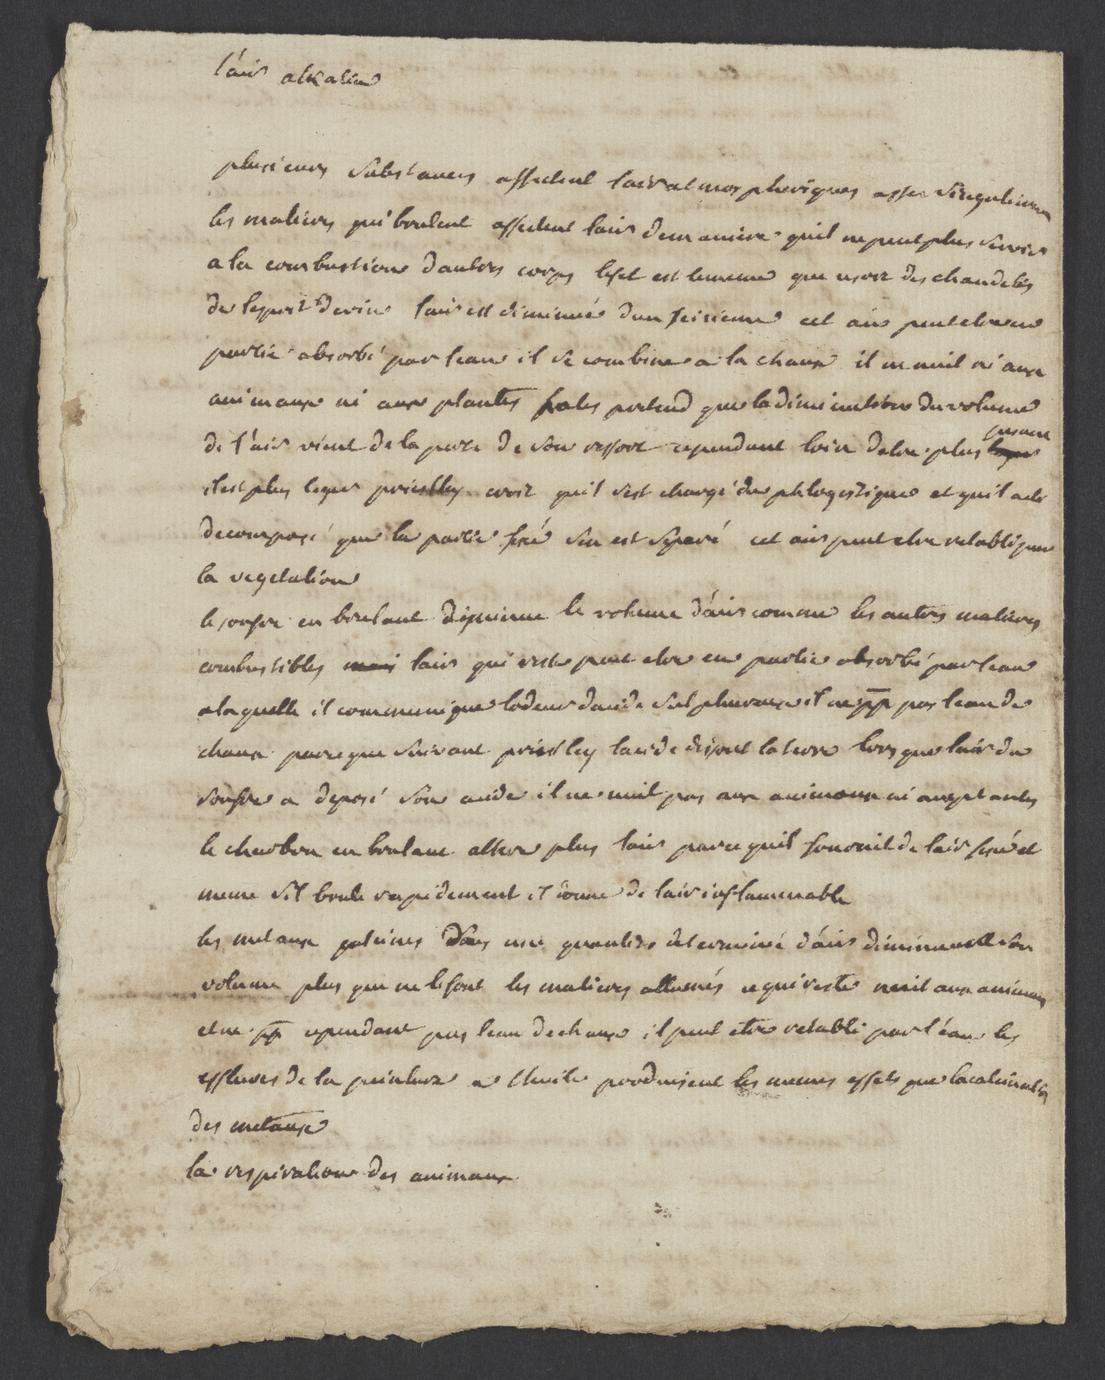 l'air alkalin
plusieurs substances affectent lair atmospheriques assez singulierem
les matieres qui brulent affectent lair demaniere quil ne peut plus servir
a la combustion dautres corps lefet est le meme que ce soit des chandeles
de lesprit devin lair est diminué dun seisieme cet air peut etre en
partie absorbé par leau il se combine a la chaux il ne nuit ni aux
animaux ni aux plantes hales pretend que la diminution du volume
de l'air vient de la perte de son ressort cependant loin detre plus pesant
il est plus leger priestley croit quil sest chargé du phlogistique et quil a ete
decomposé que la partie fixé sen est separé cet air peut etre retabli par
la vegetation
le soufre en brulant diminue le volume d'air comme les autres matieres
combustibles mais lair qui reste peut etre en partie absorbé par leau
a laquelle il communique lodeur dacide sulphureux il ne pp pas leau de
chaux parce que suivant priestley lacide disout la terre lors que lair du
soufre a deposé son acide il ne nuit pas aux animaux ni aux plantes
le charbon en brulant altere plus lair parce quil fournit de lair fixé et
meme sil brule rapidement il donne de lair inflammable
les metaux calcinés dans une quantité determiné d'air diminuent son
volume plus que ne le font les matieres allumés ce qui reste nuit aux animaux
et ne pp cependant pas leau de chaux il peut etre retabli par l'eau les
effluves de la peinture a lhuile produisent les memes effets que la calcination
des metaux
la respiration des animaux